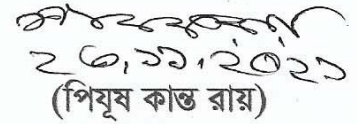 ২৩.১১.২০২১
(পিযূষ কান্ত রায়)